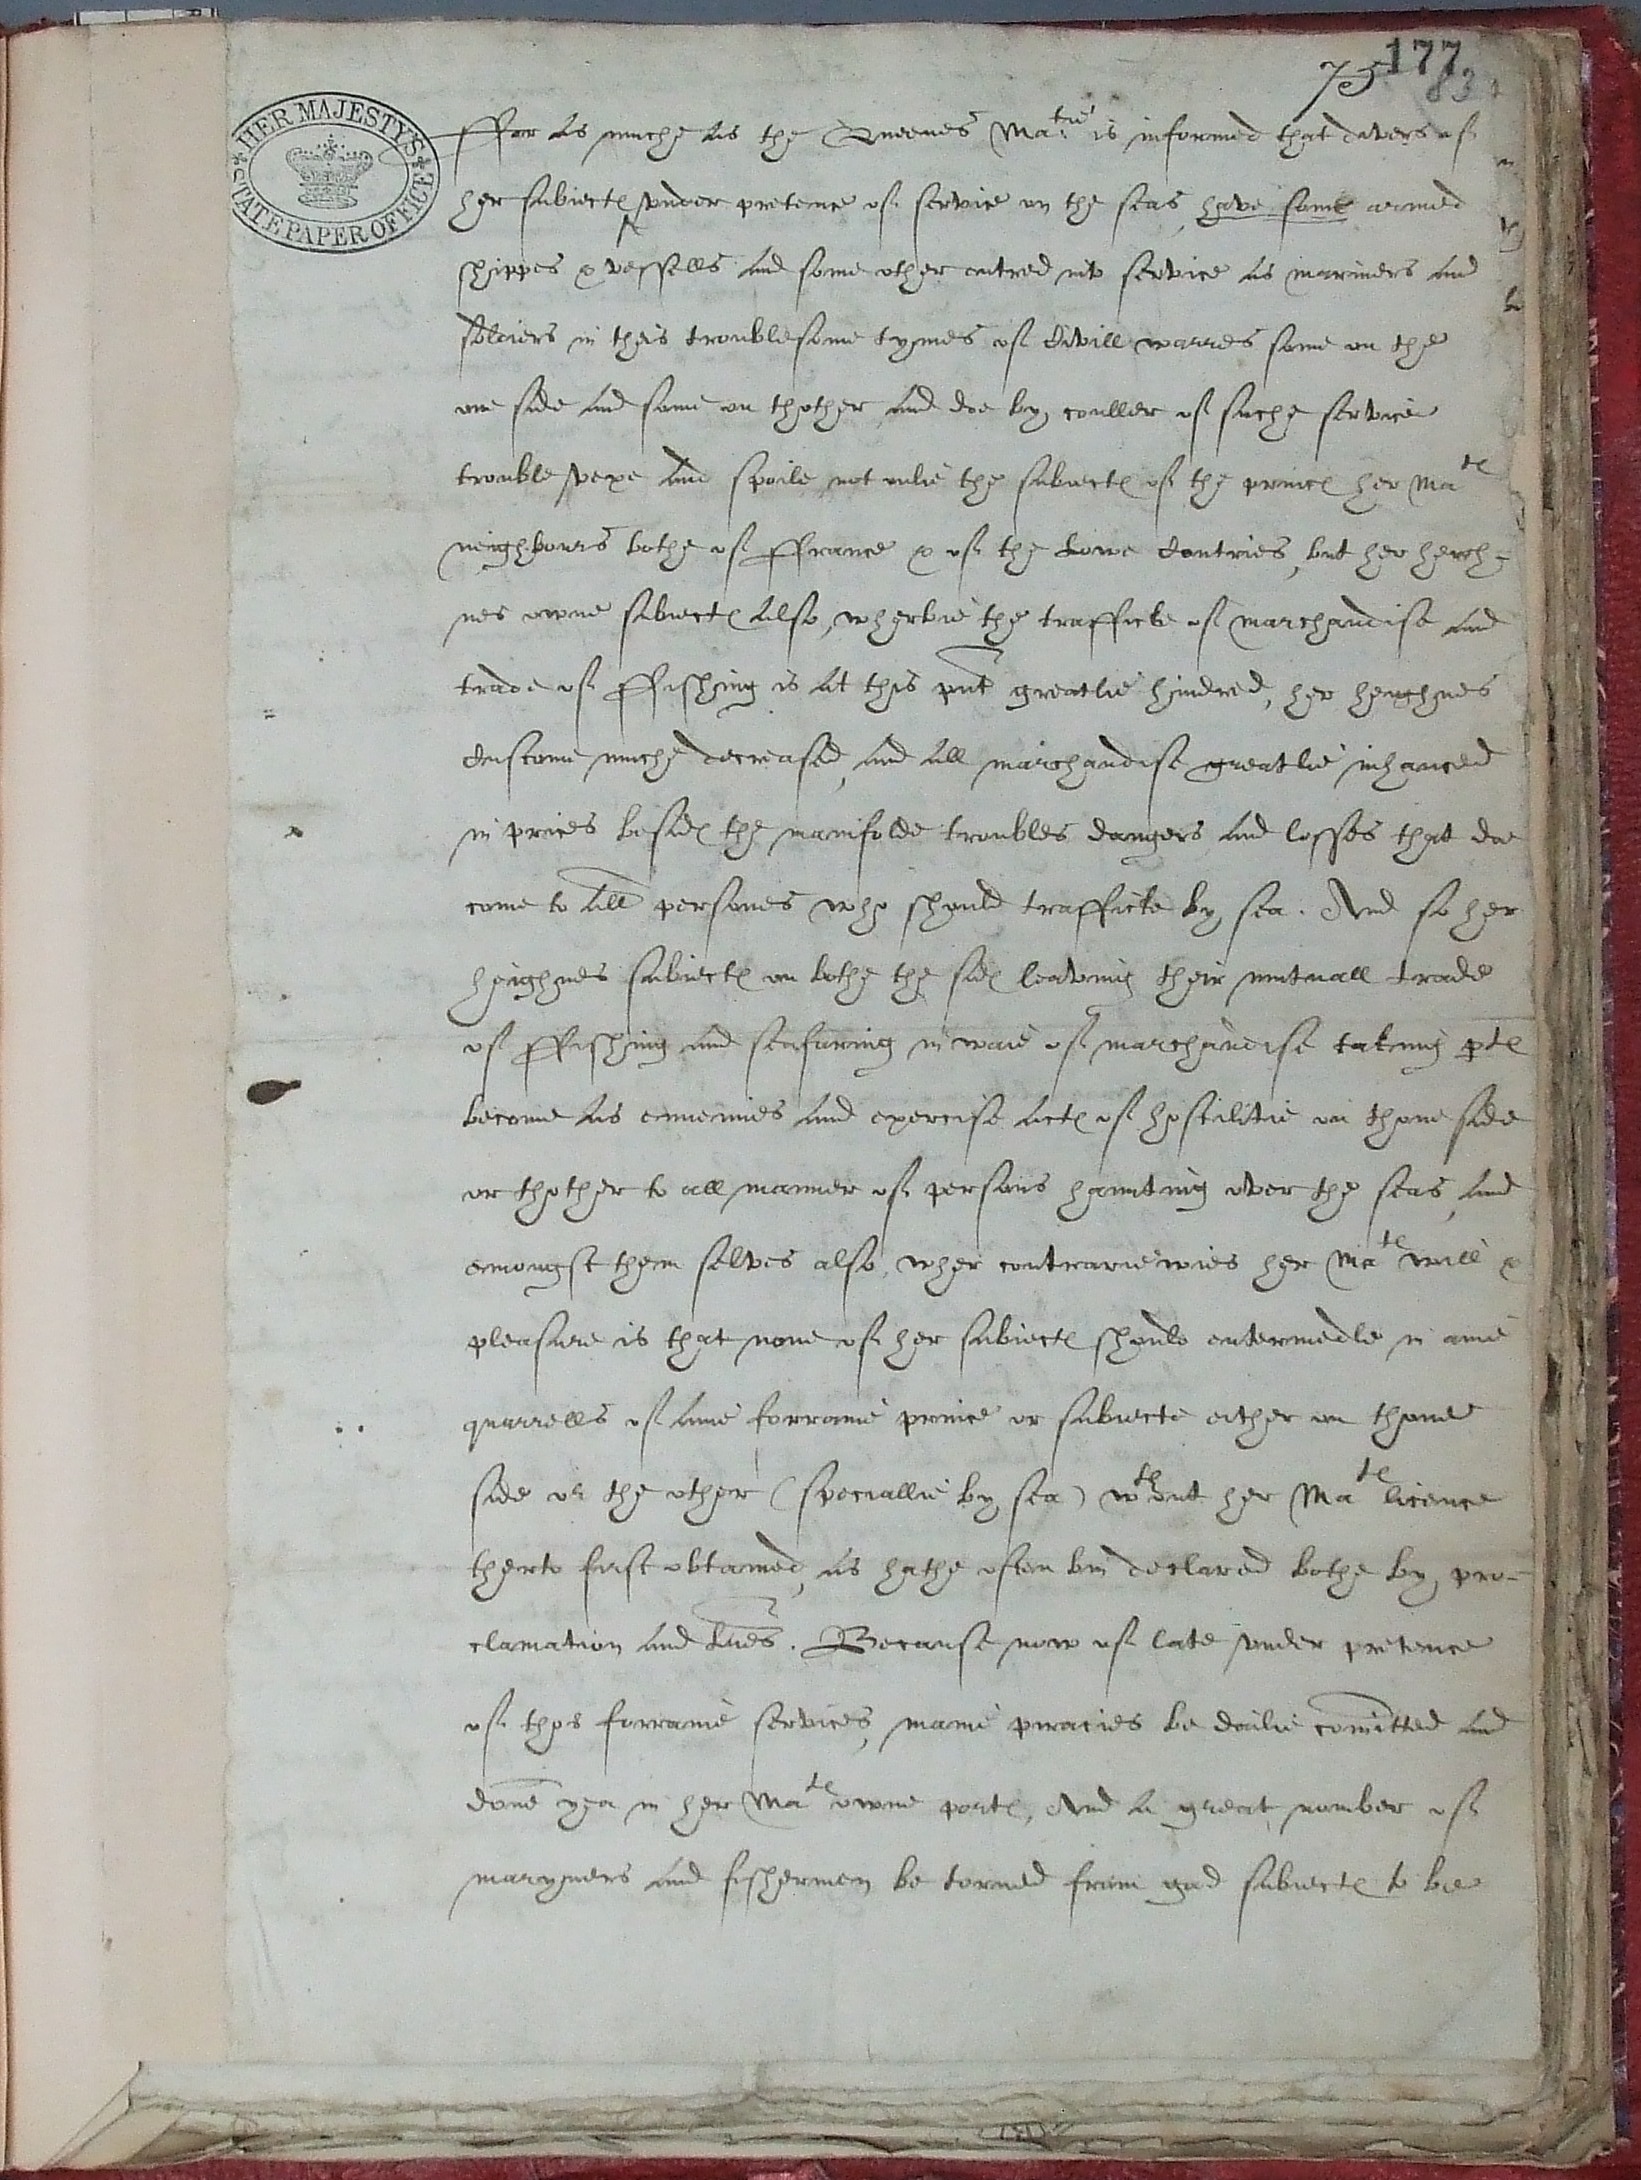 177
75
83
HER MAJESTY'S STATE PAPER OFFICE
ffor as muche as the Queenes Ma:tie is informed that divers of
her subiectℯ vnder pretence of service on the seas, have some armed
shippes & vessells and some other entred into service as mariners and
soldiers in theis troublesome tymes of Civill warres some on the
one side and some on thother, and doe by couller of suche service
trouble vexe and spoile not onlie the subiectℯ of the princℯ her Matℯ
neighbours bothe of ffrance & of the Lowe Contries, but her heigh-
nes owne subiectℯ also, wherbie the trafficke of marchandise and
trade of ffishing is at this pnt greatlie hindred, her heighnes
Custome muche decreased, and all marchandise greatlie inhanced
in prices besidℯ the manifolde troubles dangers and losses that doe
come to all persones who should trafficke by sea. And so her
heighnes subiectℯ on bothe the sidℯ leaving their mutuall trade
of ffishing and seafaring in waie of marchandise taking ptℯ
become as ennemies and exercise actℯ of hostilitie on thone side
or thother to all manner of persons haunting over the seas, and
emongst them selves also, wher contrariewies her Matℯ will &
pleasure is that none of her subiectℯ should entermedle in anie
quarrells of anie forraine prince or subiecte either on thone
side or the other (speciallie by sea) wthout her Matℯ licence
therto first obtained, as hathe often bin declared bothe by pro-
clamation and Lres. Because now of late vnder pretence
of thes forraine services, manie piracies be dailie comitted and
done yea in her Matℯ owne portℯ, And a great nomber of
maryners and fishermen be torned from good subiectℯ to be